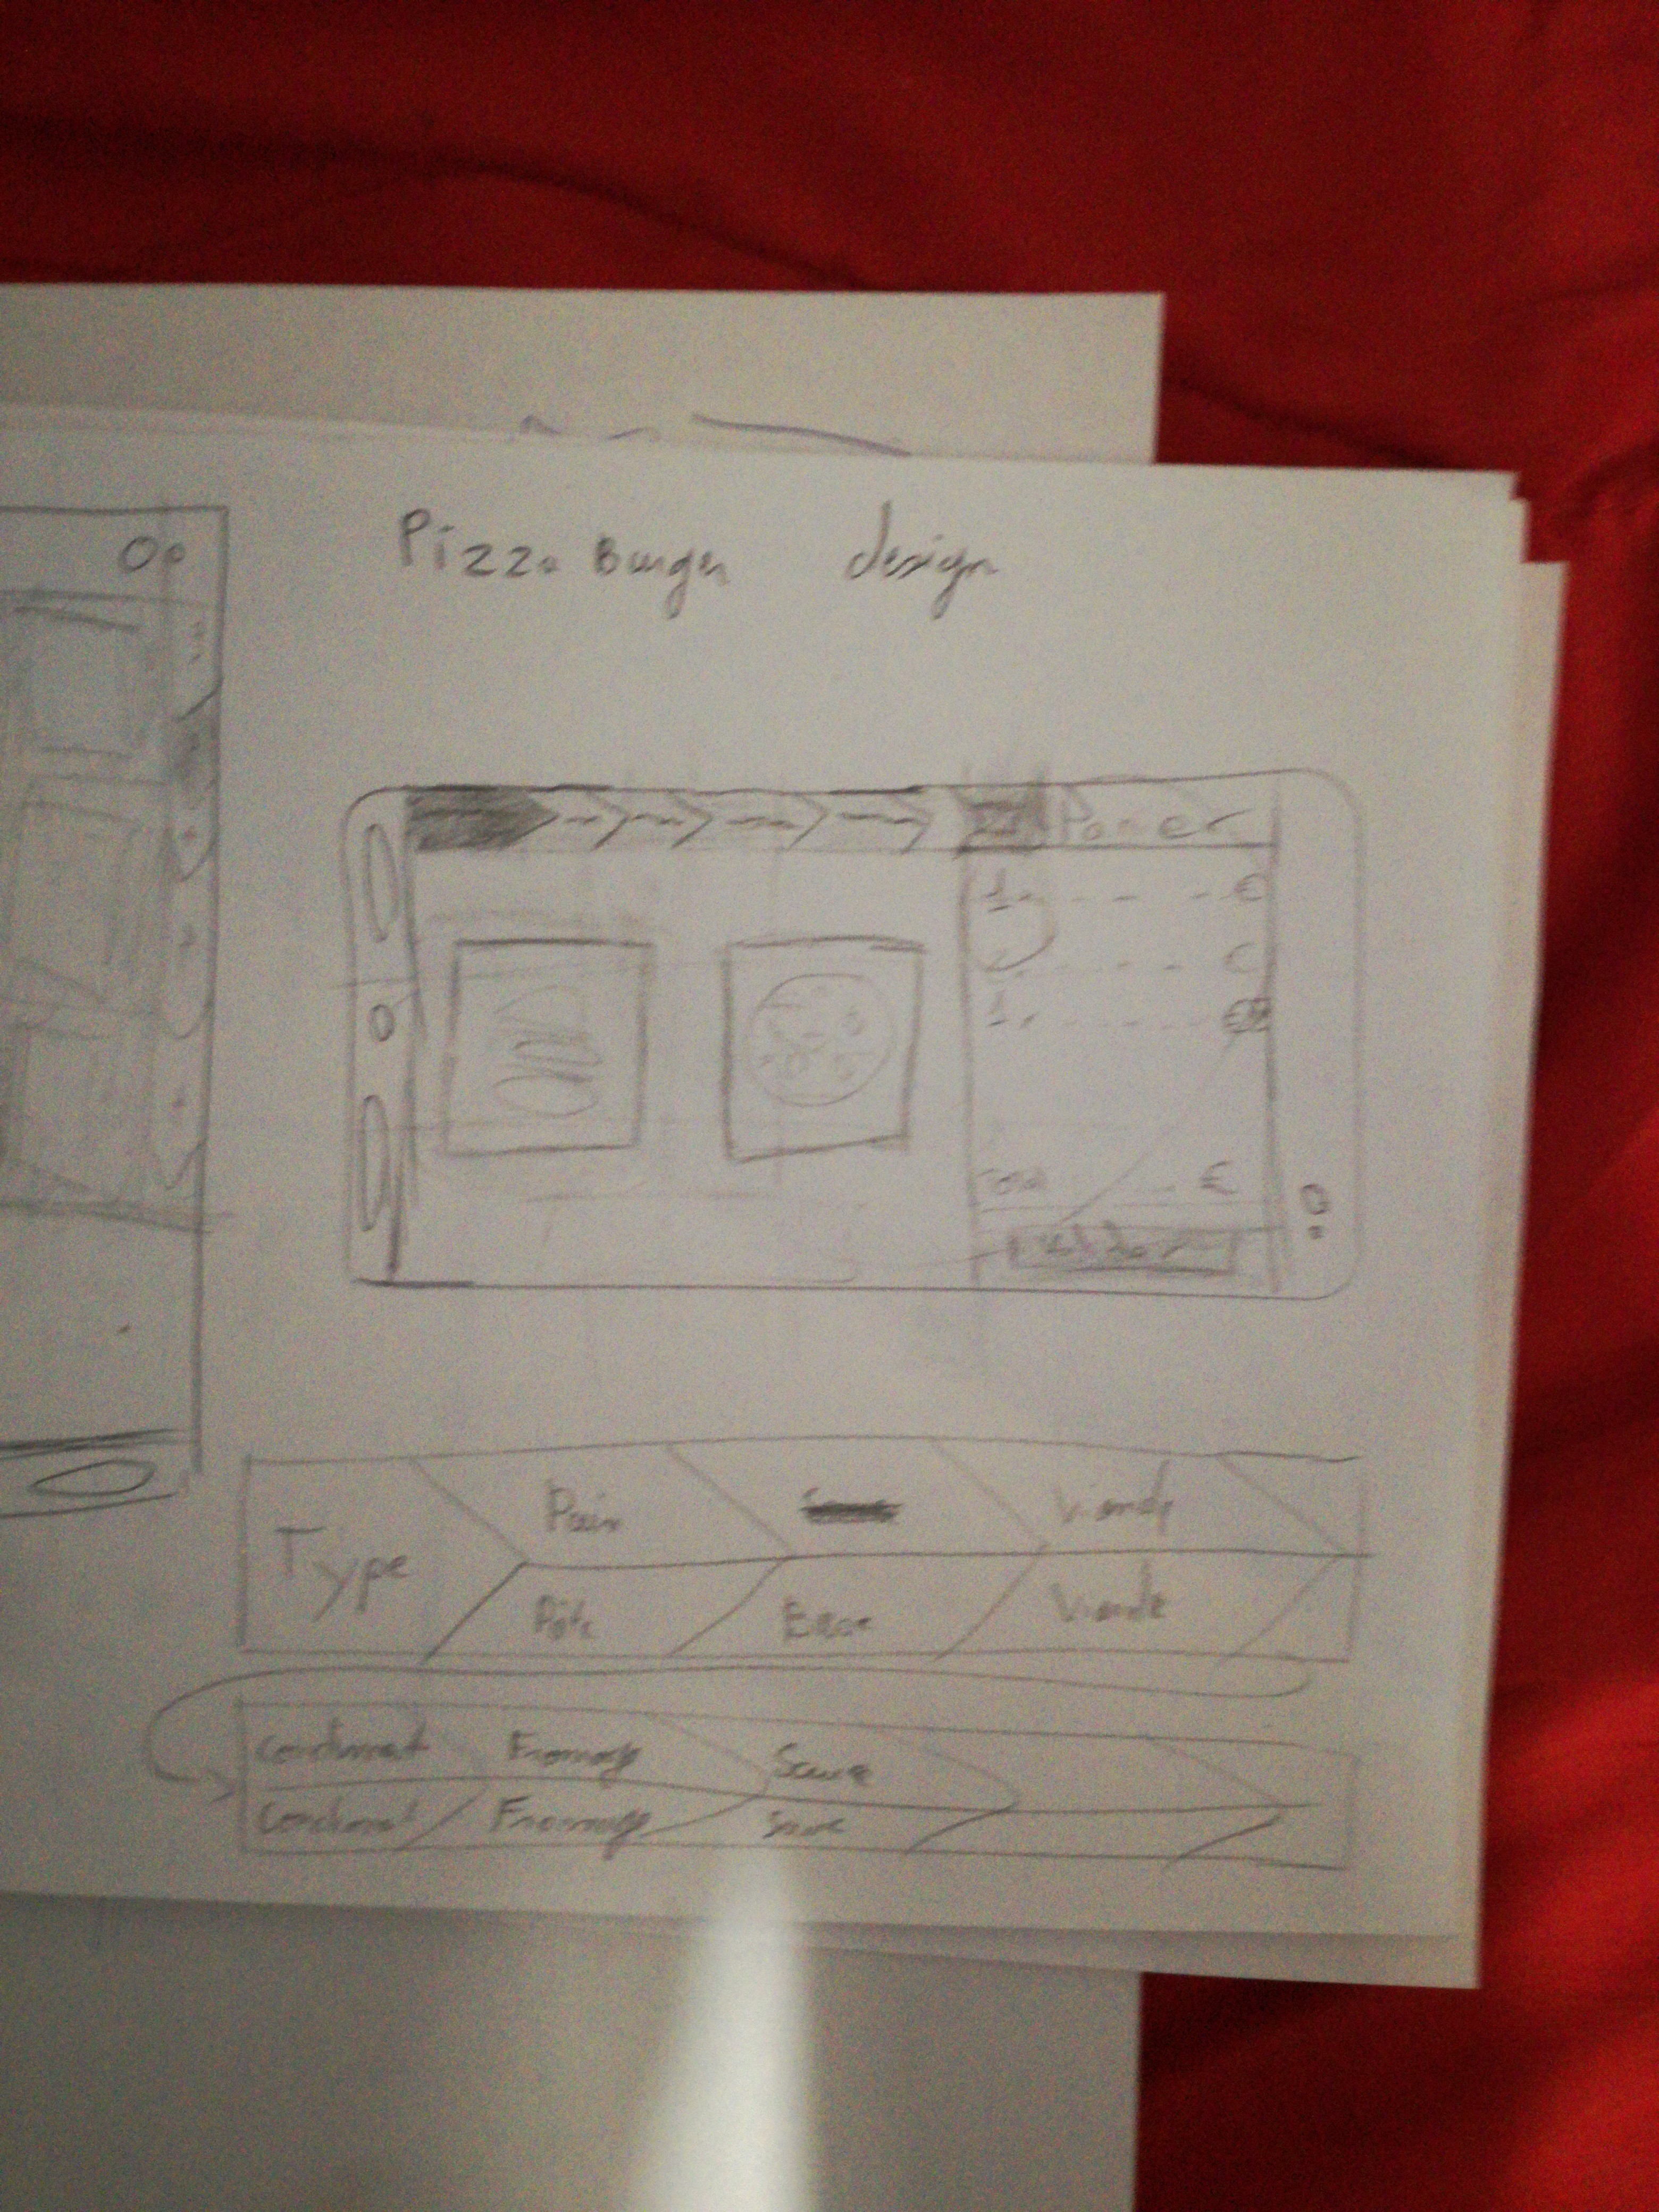 Pizza Burger design
Panier
1. - - - - €
- - - €
1. - - - - €
Total €
Valider
Type
Pain Viande
Pâte Base Viande
Condiment Fromage Sauce
Condiment Fromage Sauce